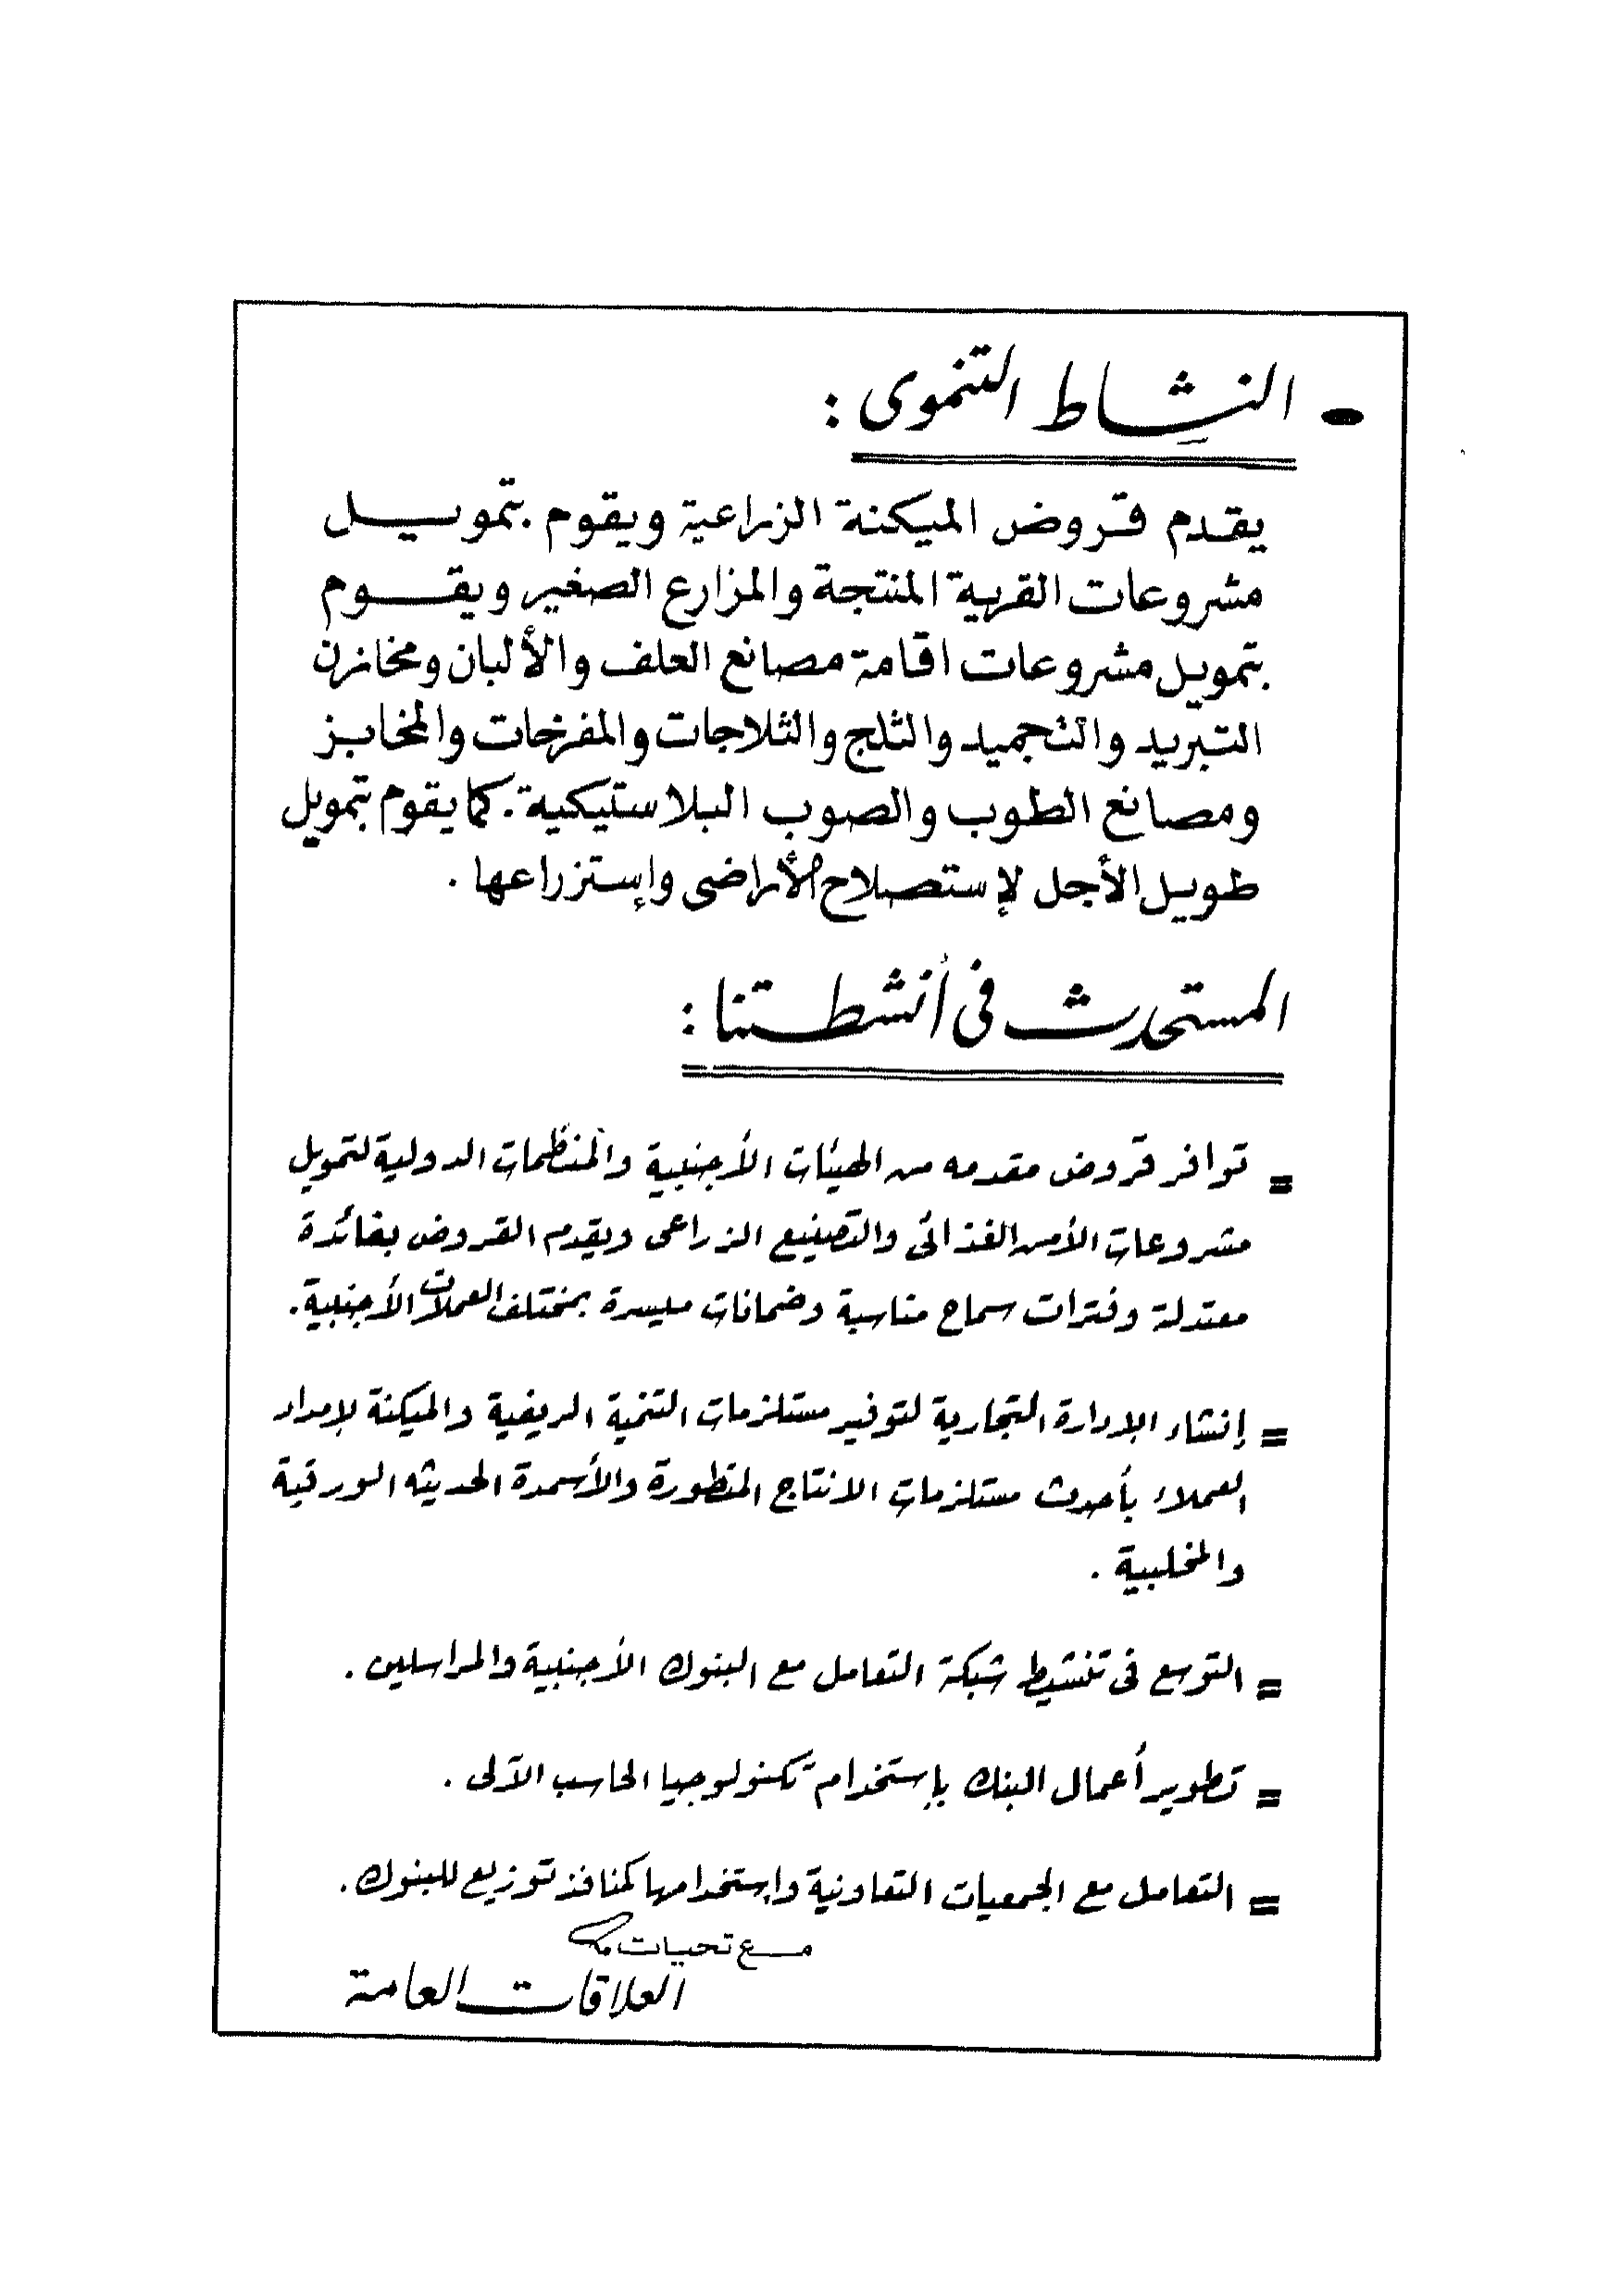 - النشاط التنموى :
يقدم قروض الميكنة الزراعية ويقوم بتمويل
مشروعات القرية المنتجة والمزارع الصغير ويقوم
بتمويل مشروعات اقامة مصانع العلف والألبان ومخازن
التبريد والتجميد والثلج والثلاجات والمفرخات والمخابز
ومصانع الطوب والصوب البلاستيكية. كما يقوم بتمويل
طويل الأجل لإستصلاح الأراضى وإستزراعها .
المستحدث فى أنشطتنا :
= توافر قروض مقدمه من الهيئات الأجنبية والمنظمات الدولية لتمويل
مشروعات الأمن الغذائى والتصنيع الزراعى ويقدم القروض بفائدة
معتدلة وفترات سماح مناسبة وضمانات ميسرة بمختلف العملات الأجنبية.
= إنشاء الإدارة التجارية لتوفير مستلزمات التنمية الريفية والميكنة لإمداد
العملاء بأحدث مستلزمات الانتاج المتطورة والأسمدة الحديثه الورقية
والمخلبية .
= التوسع فى تنشيط شبكة التعامل مع البنوك الأجنبية والمراسلين .
= تطوير أعمال البنك بإستخدام تكنولوجيا الحاسب الآلى .
= التعامل مع الجمعيات التعاونية وإستخدامها كمنافذ توزيع للبنوك .
مع تحيات
العلاقات العامة